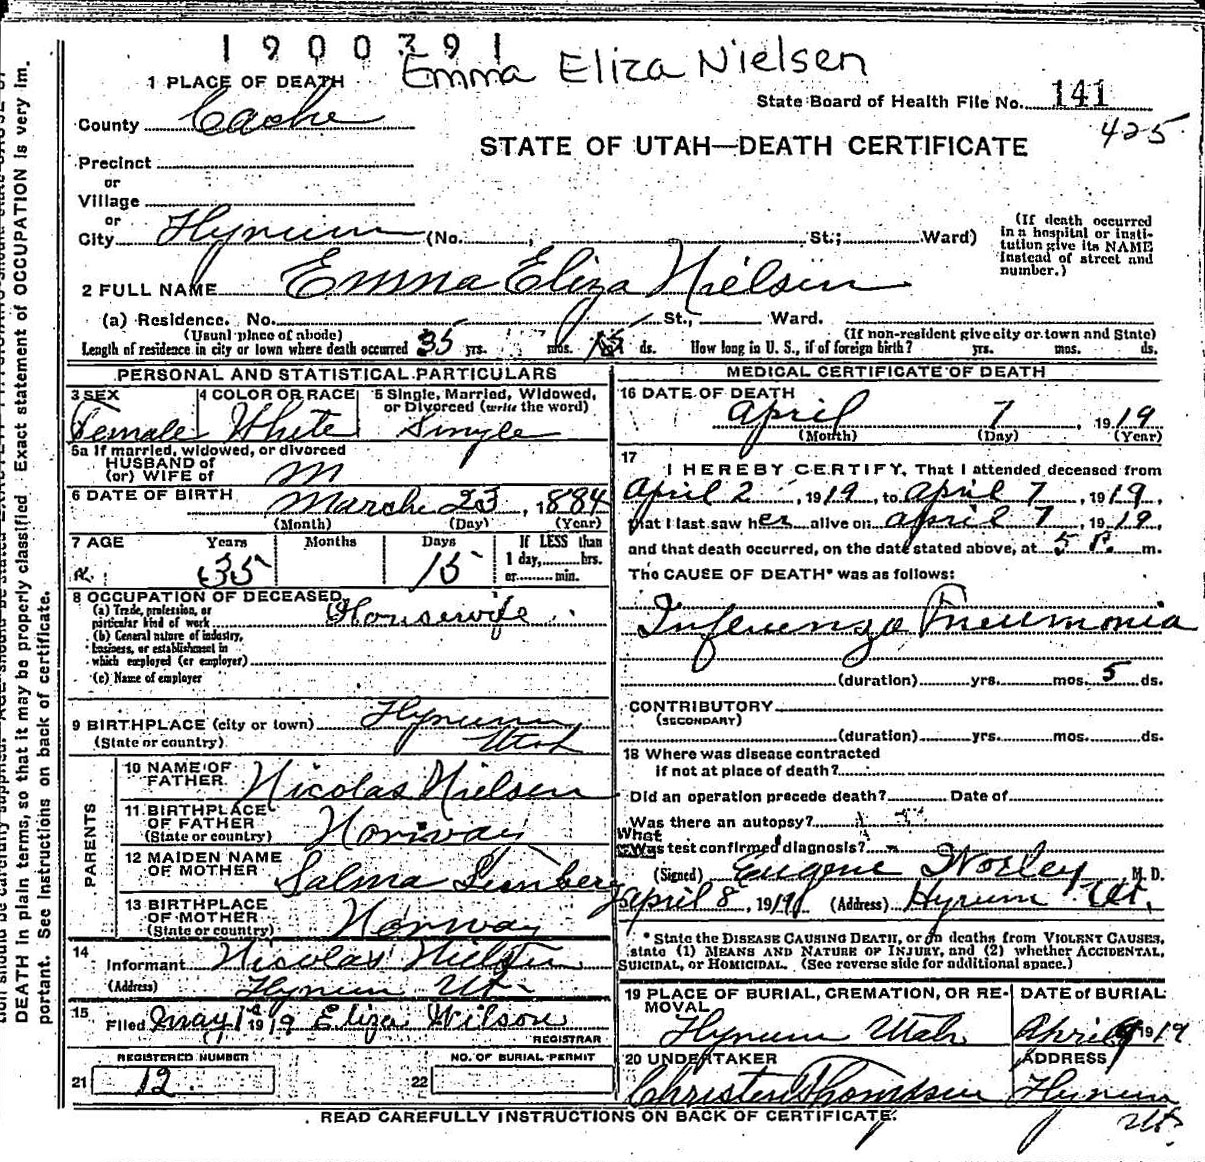 1900391
Emma Eliza Nielsen
1 PLACE OF DEATH
State Board of Health File No. 141
425
County Cache
STATE OF UTAH—DEATH CERTIFICATE
Precinct
or
Village
or
City Hyrum (No. , St.; Ward)
(If death occurred in a hospital or institution give its NAME instead of street and number.)
2 FULL NAME Emma Eliza Nielsen
(a) Residence. No. St., Ward.
(Usual place of abode) (If non-resident give city or town and State)
Length of residence in city or town where death occurred 35 yrs. mos. 15 ds. How long in U. S., if of foreign birth? yrs. mos. ds.
PERSONAL AND STATISTICAL PARTICULARS
3 SEX Female
4 COLOR OR RACE White
5 Single, Married, Widowed, or Divorced (write the word) Single
5a If married, widowed, or divorced
HUSBAND of
(or) WIFE of
6 DATE OF BIRTH March 23, 1884
(Month) (Day) (Year)
7 AGE Years Months Days If LESS than
35 15 1 day, hrs.
or min.
8 OCCUPATION OF DECEASED
(a) Trade, profession, or particular kind of work Housewife
(b) General nature of industry, business, or establishment in which employed (or employer)
(c) Name of employer
9 BIRTHPLACE (city or town) Hyrum
(State or country) Utah
PARENTS
10 NAME OF FATHER Nicolas Nielsen
11 BIRTHPLACE OF FATHER (State or country) Norway
12 MAIDEN NAME OF MOTHER Salma
13 BIRTHPLACE OF MOTHER (State or country) Norway
14 Informant Nicolas Nielsen
(Address) Hyrum Ut.
15 Filed May 1st 1919 Eliza Wilson
REGISTRAR
REGISTERED NUMBER NO. OF BURIAL PERMIT
21 12 22
MEDICAL CERTIFICATE OF DEATH
16 DATE OF DEATH
April 7, 1919
(Month) (Day) (Year)
17 I HEREBY CERTIFY, That I attended deceased from
April 2, 1919, to April 7, 1919,
that I last saw her alive on April 7, 1919,
and that death occurred, on the date stated above, at 5 P. m.
The CAUSE OF DEATH* was as follows:
Influenza Pneumonia
(duration) yrs. mos. 5 ds.
CONTRIBUTORY
(SECONDARY)
(duration) yrs. mos. ds.
18 Where was disease contracted
if not at place of death?
Did an operation precede death? Date of
Was there an autopsy?
What test confirmed diagnosis?
(Signed) Eugene Worley M. D.
April 8, 1919 (Address) Hyrum Ut.
* State the DISEASE CAUSING DEATH, or in deaths from VIOLENT CAUSES, state (1) MEANS AND NATURE OF INJURY, and (2) whether ACCIDENTAL, SUICIDAL, or HOMICIDAL. (See reverse side for additional space.)
19 PLACE OF BURIAL, CREMATION, OR REMOVAL DATE of BURIAL
Hyrum Utah April 9 1919
20 UNDERTAKER ADDRESS
Christen Thompsen Hyrum Ut.
READ CAREFULLY INSTRUCTIONS ON BACK OF CERTIFICATE.
DEATH in plain terms, so that it may be properly classified. Exact statement of OCCUPATION is very important. See instructions on back of certificate.